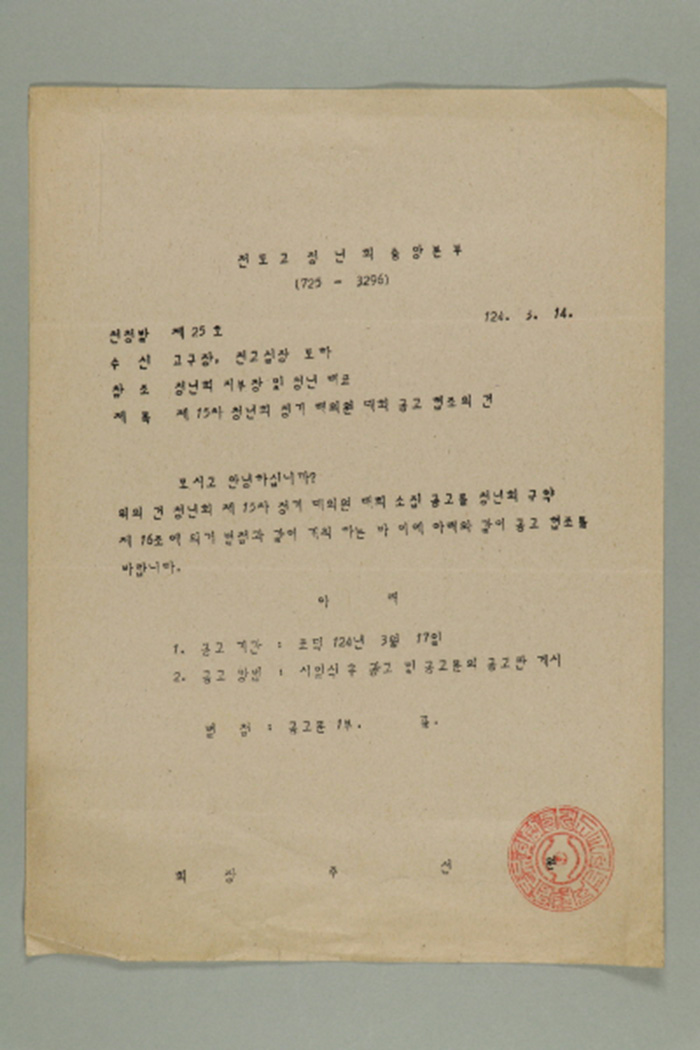 천도교청년회중앙본부
(725 - 3296)
124. 3. 14.
천청발 제 25 호
수 신 교구장, 전교실장 도하
참 조 청년회 지부장 및 청년 대표
제 목 제 15차 청년회 정기 대의원 대회 공고 협조의 건
모시고 안녕하십니까?
위의 건 청년회 제 15차 정기 대의원 대회 소집 공고를 청년회 규약
제 16조에 의거 별첨과 같이 게첨 하는 바 이에 아래와 같이 공고 협조를
바랍니다.
아 래
1. 공고 기간 : 포덕 124년 3월 17일
2. 공고 방법 : 시일식 후 광고 및 공고문의 공고판 게시
별 첨 : 공고문 1부. 끝.
회 장 주 선 원